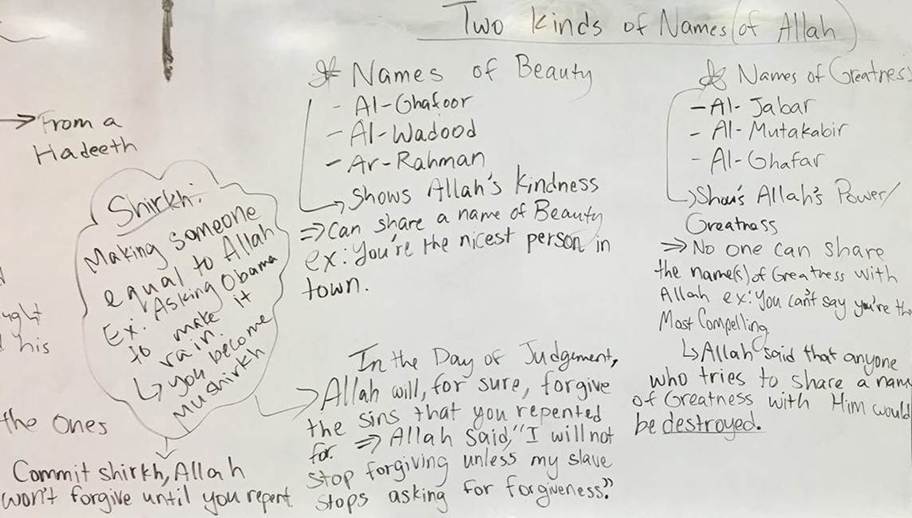 Two Kinds of Names of Allah
From a
Hadeeth
Names of Beauty
- Al-Ghafoor
- Al-Wadood
- Ar-Rahman
Shows Allah's Kindness
⇒ Can share a name of Beauty
ex: You're the nicest person in
town.
Names of Greatness
- Al-Jabar
- Al-Mutakabir
- Al-Ghafar
Shows Allah's Power/
Greatness
⇒ No one can share
the name(s) of Greatness with
Allah ex: You can't say you're the
Most Compelling
↳ Allah said that anyone
who tries to share a name
of Greatness with Him would
be destroyed.
Shirkh:
Making someone
equal to Allah
Ex: Asking Obama
to make it
rain.
↳ you become
Mushirkh
his
the Ones
Commit shirkh, Allah
won't forgive until you repent
In the Day of Judgement,
Allah will, for sure, forgive
the sins that you repented
for ⇒ Allah said, "I will not
stop forgiving unless my slave
stops asking for forgiveness."